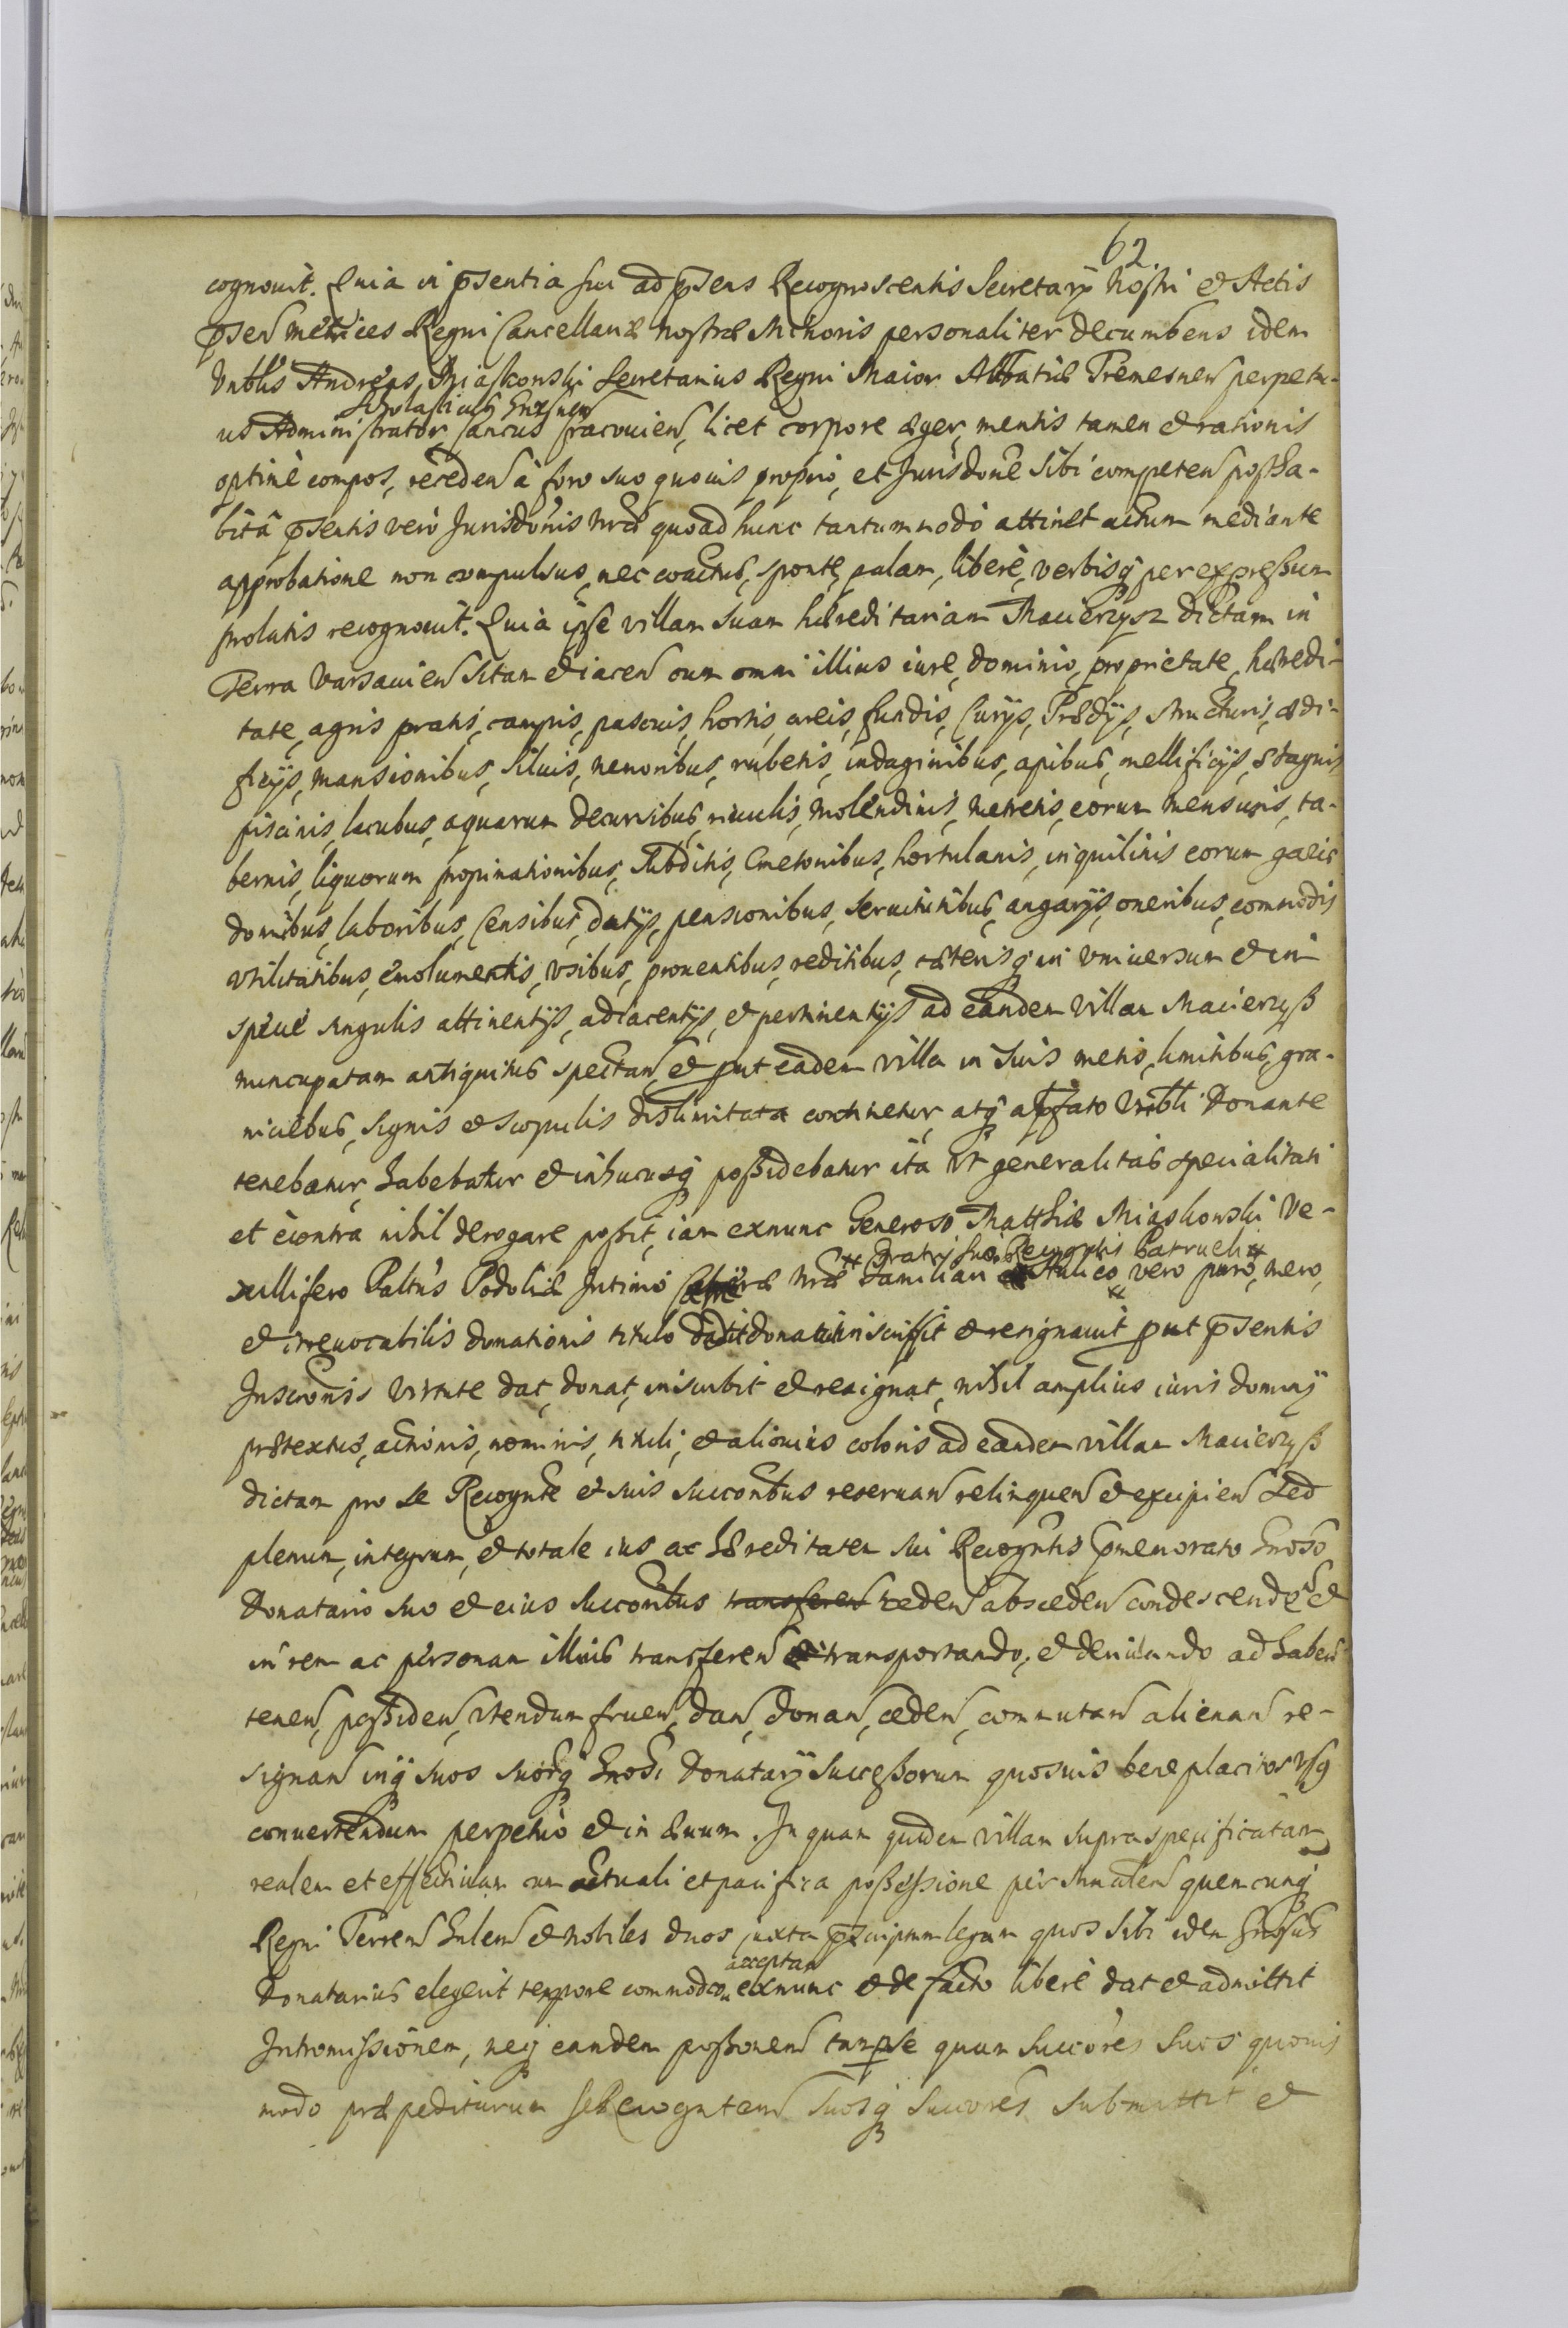 62.
cognouit. Quia in p̄sentia sui ad p̄sens Recognoscentis Secretarÿ Nostri et Actis
p̄sen metrices Regni Cancellariæ Nostræ Minoris personaliter decumbens idem
Vnblis Andreas Miaskowski Secretarius Regni Maior Abbatiæ Tremesnen perpetu-
Scholasticus Gneznen
us Administrator, Cancus Cracouien, licet corpore æger, mentis tamen et rationis
optimè compos, receden à foro suo quouis proprio, et Jurisdone sibi competen postha-
bitâ p̄sentis verò Jurisdonis Nræ quoad hunc tantummodò attinet actum mediante
approbatione non compulsus, nec coactus, sponte, palam, liberè, verbisq̃ per expressum
prolatis recognouit. Quia ipse villam suam hæreditariam Macierzysz dictam in
Terra Varsauien sitam et iacen cum omni illius iure, dominio, proprietate, hæredi-
tate, agris pratis, campis, pascuis, hortis, areis, fundis, Curÿs, Prædÿs, structuris, ædi-
ficÿs, mansionibus, siluis, nemoribus, rubetis, indaginibus, apibus, mellificÿs, stagnis
piscinis, lacubus, aquarum decursibus, riuulis, molendinis, metretis, eorum mensuris, ta-
bernis, liquorum propinationibus, Subditis, Cmetonibus, hortulanis, inquilinis eorum
donibus, laboribus, Censibus, datÿs, pensionibus, seruitutibus, angarÿs, oneribus, commodis
vtilitatibus, emolumentis, vsibus, prouentibus, reditibus, cæterisq̃ in vniuersum et in
speue singulis attinentÿs, adiacentÿs, et pertinentÿs ad eandem villam Macierzyß
nuncupatam antiquitus spectan, et put eadem villa in suis metis, limitibus, gra-
niciebus, signis et scopulis dislimitata continetur, atq̃ a p̄fato Vnbli Donante
tenebatur, habebatur et inhucusq̃ possidebatur ita vt generalitas specialitati
et econtra nihil derogare possit, iam exnunc Generoso Matthiæ Miaskowski Ve-
Fratri suo Recogntis Patrueli
xillifero Paltus Podoliæ Intimo Cam̃ræ Nræ Familiari Aulico vero puro, mero,
et irreuocabilis donationis titulo dedit donauit inscripsit et resignauit put p̄sentis
Inscronis virtute dat, donat, inscribit et resignat, nihil amplius iuris dominÿ
prætextus, actionis, nominis, tituli, et alicuius coloris ad eandem villam Macierzyß
dictam pro se Recognte et suis succoribus reseruan relinquen et excipien Sed
plenum, integrum, et totale ius ac hæreditatem sui Recogntis p̄memorato Gnoso
Donatario suo et eius succoribus transferen ceden absceden condescenden et
in rem ac personam illius transferen transportando, et deriuando ad haben
tenen, possiden, vtendum fruen, dan, donan, ceden, commutan alienan re-
signan inq̃ suos suorq̃ Gnosi Donatarÿ Successorum quosuis beneplacitos vsq
conuertendum perpetuò et in æuum. In quam quidem villam supraspecificatam
realem et effectiuam cum actuali et pacifica possessione per Mnalem quemcunq̃
Regni Terren Gnlem et nobiles duos juxta p̄scriptum legum quos sibi idem Gnosus
acceptan
Donatarius elegerit tempore commodo exnunc et de facto liberè dat et admittit
Intromissionem, neq̃ eandem possonem tam p se quam Succores suos quouis
modo præpediturum se Recognten suosq̃ Succores submittit et